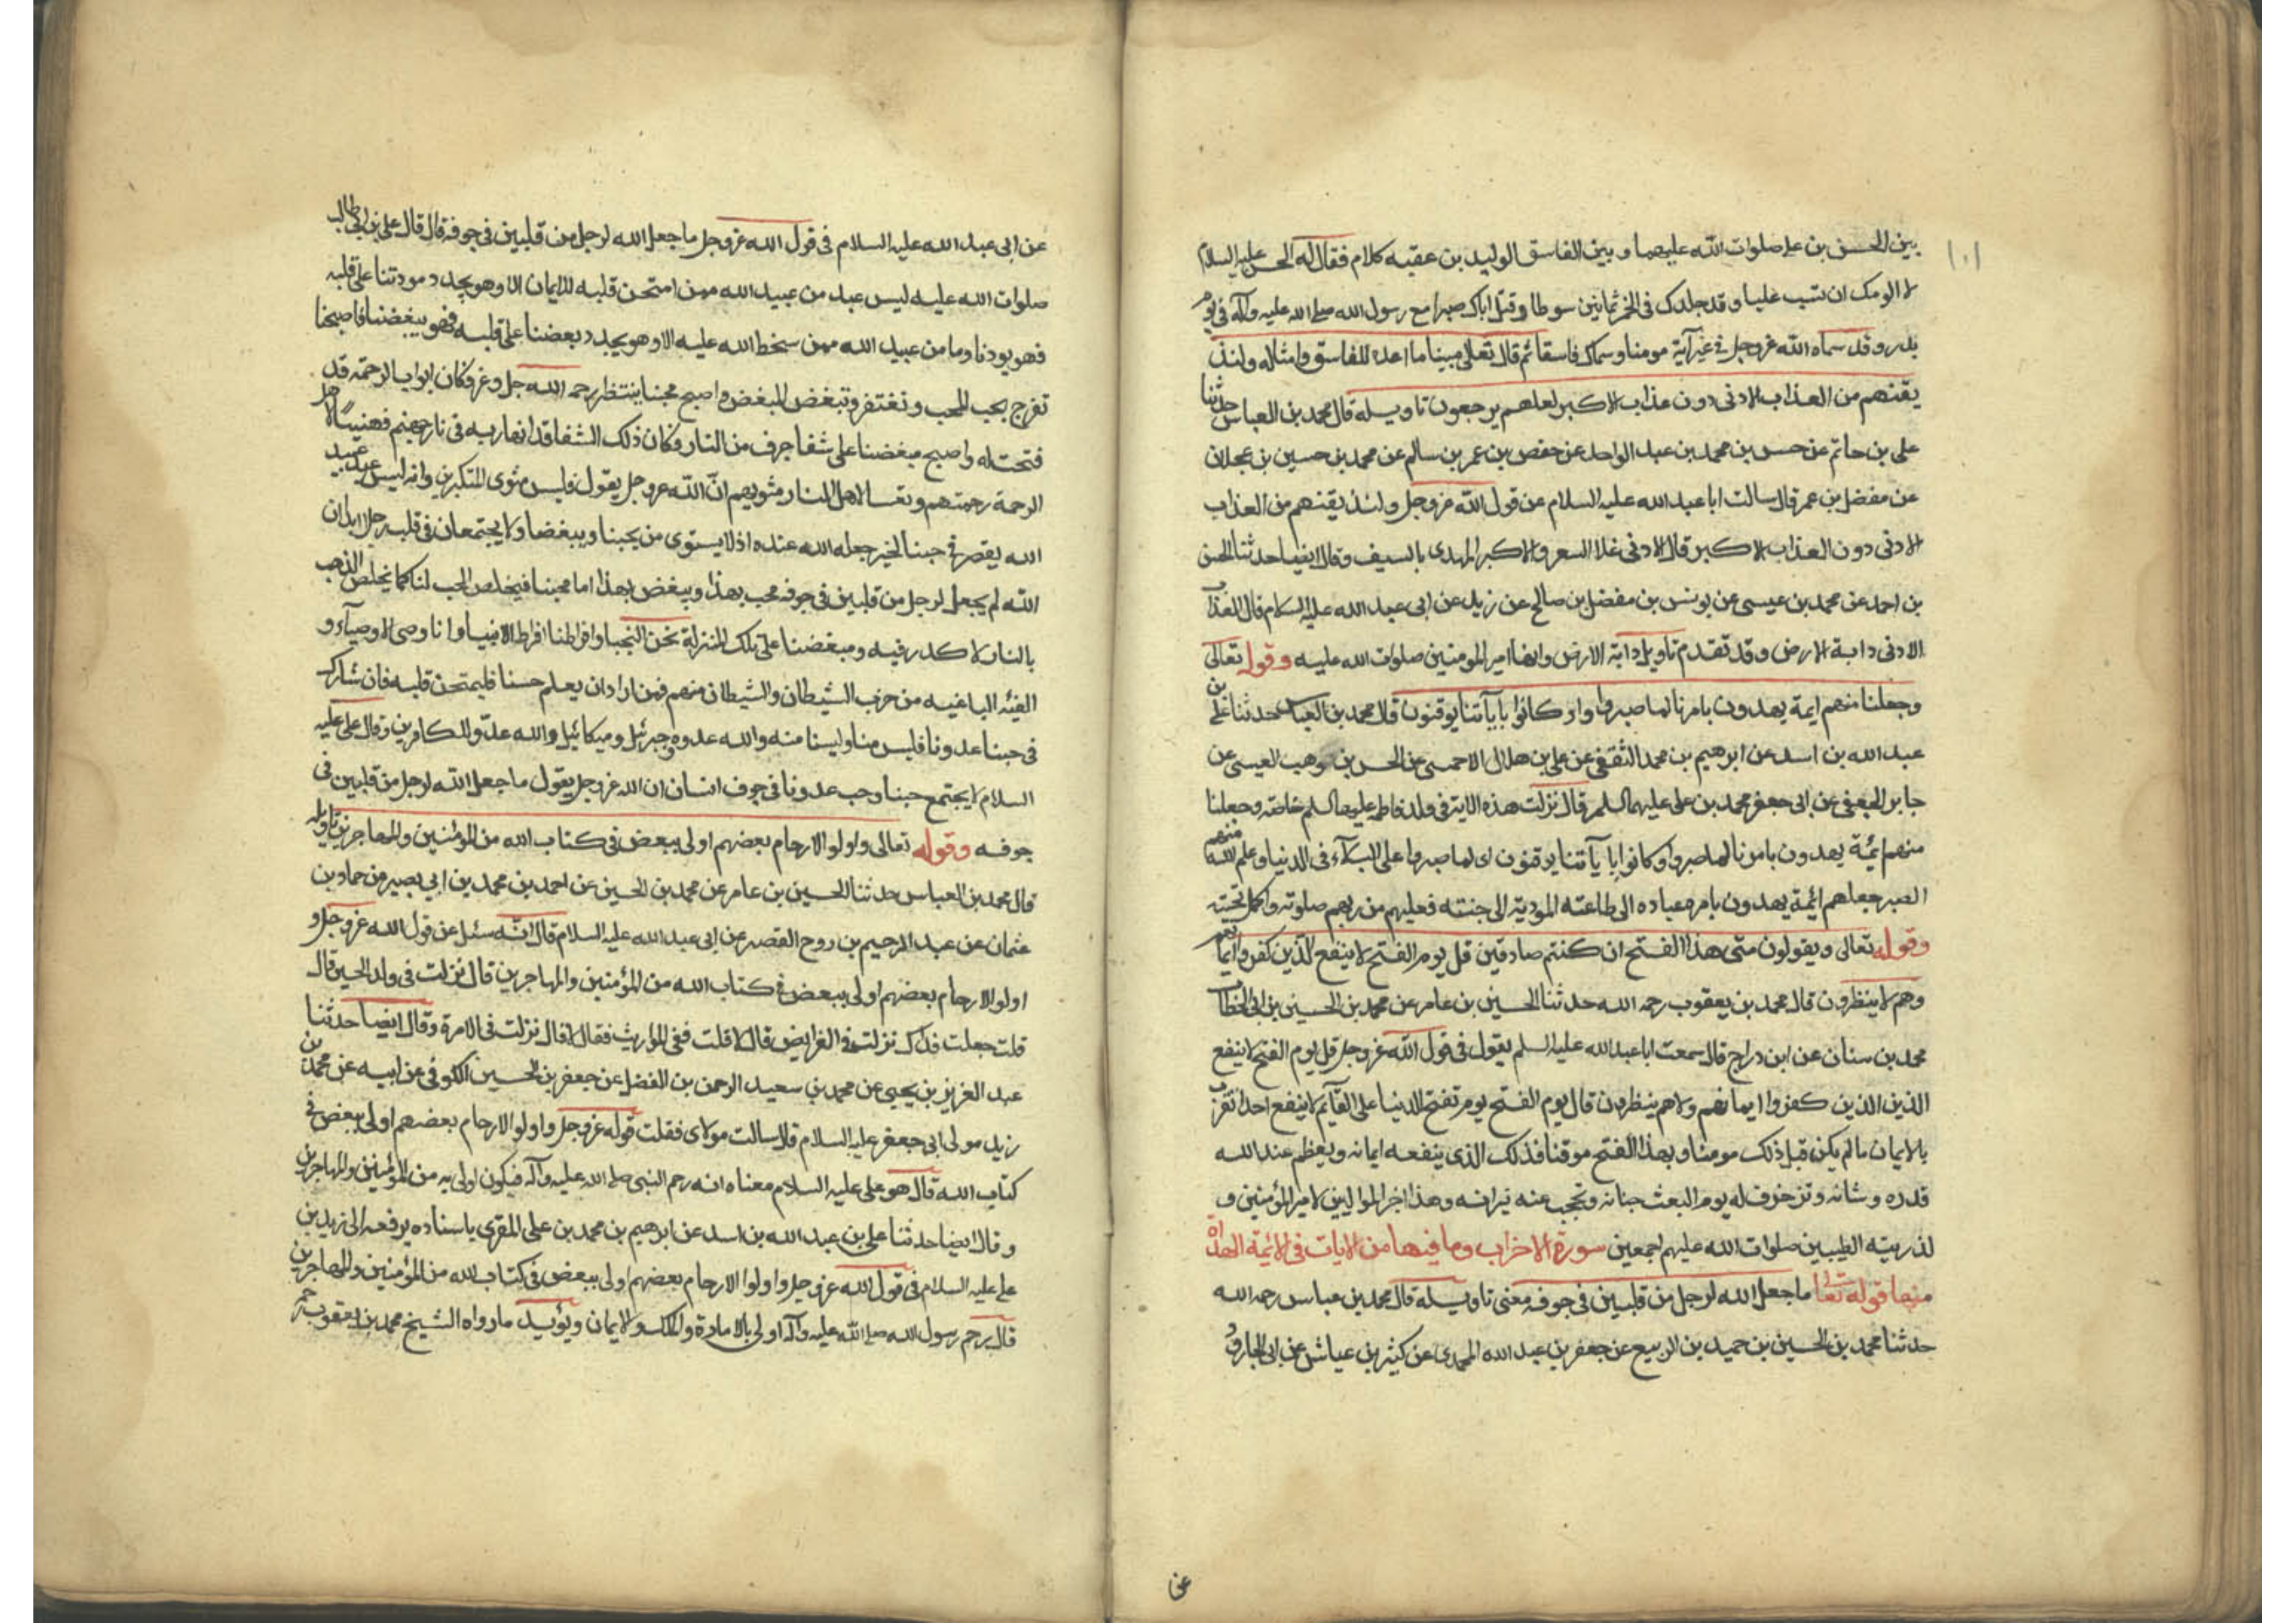 ١٠١
بين الحسن بن علي صلوات الله عليهما و بين الفاسق الوليد بن عقبه كلام فقال له الحسن عليه السلام
لا الومك ان تسب عليا و قد جلدك في الخمر ثمانين سوطا و قتل اباك صبرا مع رسول الله صلى الله عليه وآله في يوم
بدر و قد سماه الله عز و جل في غير آية مومنا و سماك فاسقا ثم قال تعالى مبينا ما اعده للفاسق و امثاله و لنذ
يقنهم من العذاب الادنى دون عذاب الاكبر لعلهم يرجعون تاويله قال محمد بن العباس حدثنا
علي بن حاتم عن حسن بن محمد بن عبد الواحد عن حفص بن عمر بن سالم عن محمد بن حسين بن عجلان
عن مفضل بن عمر قال سالت ابا عبد الله عليه السلام عن قول الله عز و جل و لنذيقنهم من العذاب
الادنى دون العذاب الاكبر قال الادنى غلا السعر و الاكبر المهدى بالسيف و قال ايضا حدثنا الحسن
بن احمد عن محمد بن عيسى عن يونس بن مفضل بن صالح عن زيد عن ابى عبد الله عليه السلام قال العذاب
الادنى دابة الارض و قد تقدم تاويل دابة الارض و انها امير المومنين صلوات الله عليه و قوله تعالى
و جعلنا منهم ايمة يهدون بامرنا لما صبروا و كانوا بايآتنا يوقنون قال محمد بن العباس حدثنا علي بن
عبد الله بن اسد عن ابرهيم بن محمد الثقفي عن علي بن هلال الاحمسى عن الحسن بن وهب العبسى عن
جابر الجعفي عن ابى جعفر محمد بن على عليهما السلم قال نزلت هذه الاية في ولد فاطمه عليها السلم خاصة و جعلنا
منهم ائمة يهدون بامرنا لما صبروا و كانوا بايآتنا يوقنون اى لما صبروا على البلآء فى الدنيا و علم الله منهم
الصبر جعلهم ائمة يهدون بامره عباده الى طاعته المودية الى جنته فعليهم من ربهم صلوته و اكمل تحيته
و قوله تعالى و يقولون متى هذا الفتح ان كنتم صادقين قل يوم الفتح لا ينفع الذين كفروا ايمانهم
و هم لا ينظرون قال محمد بن يعقوب رحمه الله حدثنا الحسين بن عامر عن محمد بن الحسين بن ابى الخطاب
محمد بن سنان عن ابن دراج قال سمعت ابا عبد الله عليه السلم يقول فى قول الله عز و جل قل يوم الفتح لا ينفع
الذين الذين كفروا ايمانهم ولا هم ينظرون قال يوم الفتح يوم تفتح الدنيا على القآئم لا ينفع احدا تقرب
بالايمان ما لم يكن قبل ذلك مومنا و بهذا الفتح موقنا فذلك الذى ينفعه ايمانه و يعظم عند الله
قدره و شانه و تزخرف له يوم البعث جنانه و تحجب عنه نيرانه و هذا اجر الموالين لامير المؤمنين و
لذريته الطيبين صلوات الله عليهم اجمعين سورة الاحزاب و ما فيها من الايات فى الائمة الهداة
منها قوله تعالى ما جعل الله لرجل من قلبين فى جوفه معنى تاويله قال محمد بن عباس رحمه الله
حدثنا محمد بن الحسين بن حميد بن الربيع عن جعفر بن عبد الله المحمدى عن كثير بن عياش عن ابى الجارود
عن
عن ابى عبد الله عليه السلام فى قول الله عز و جل ما جعل الله لرجل من قلبين فى جوفه قال قال على بن ابى طالب
صلوات الله عليه ليس عبد من عبيد الله ممن امتحن قلبه للايمان الا و هو يجد مودتنا على قلبه
فهو يودنا و ما من عبيد الله ممن سخط الله عليه الا و هو يجد بغضنا على قلبه فهو يبغضنا فاصبحنا
نفرج بحب المحب و نغتفر و نبغض المبغض و اصبح محبنا ينتظر رحمه الله جل و عز و كان ابواب الرحمة قد
فتحت له و اصبح مبغضنا على شفا جرف من النار و كان ذلك الشفا قد انهار به فى نار جهنم فهنيئا لاهل
الرحمة رحمتهم و تعسا لاهل النار مثويهم ان الله عز و جل يقول فلبس مثوى المتكبرين و انه ليس عبد من عبيد
الله يقصر فى حبنا لخير جعله الله عنده اذ لا يستوى من يحبنا و يبغضنا و لا يجتمعان فى قلب رجل ابدا ان
الله لم يجعل لرجل من قلبين فى جوفه يحب بهذا و يبغض بهذا اما محبنا فيخلص الحب لنا كما يخلص الذهب
بالنار لا كدر فيه و مبغضنا على تلك المنزلة نحن النجبا و افراطنا افراط الانبيا و انا وصى الاوصيآء و
الفئه الباغيه من حزب الشيطان و الشيطان منهم فمن اراد ان يعلم حبنا فليمتحن قلبه فان شارك
فى حبنا عدونا فليس منا و لسنا منه و الله عدوه و جبرئيل و ميكائيل و الله عدو للكافرين و قال على عليه
السلام لا يجتمع حبنا و حب عدونا فى جوف انسان ان الله عز و جل يقول ما جعل الله لرجل من قلبين فى
جوفه و قوله تعالى و اولو الارحام بعضهم اولى ببعض فى كتاب الله من المؤمنين و المهاجرين تاويله
قال محمد بن العباس حدثنا الحسين بن عامر عن محمد بن الحسين عن احمد بن محمد بن ابى بصير عن حماد بن
عثمان عن عبد الرحيم بن روح القصير عن ابى عبد الله عليه السلام قال انه سئل عن قول الله عز و جل و
اولو الارحام بعضهم اولى ببعض فى كتاب الله من المؤمنين و المهاجرين قال نزلت فى ولد الحسين قال
قلت جعلت فداك نزلت فى الفرايض قال لا قلت ففى المواريث فقال لا قال نزلت فى الامرة و قال ايضا حدثنا
عبد العزيز بن يحيى عن محمد بن سعيد الرحمن بن الفضل عن جعفر بن الحسين الكوفي عن ابيه عن محمد بن
زيد مولى ابى جعفر عليه السلام قال سالت مولاى فقلت قوله عز و جل و اولو الارحام بعضهم اولى ببعض فى
كتاب الله قال هو على عليه السلام معناه انه رحم النبى صلى الله عليه وآله فيكون اولى به من المؤمنين و المهاجرين
و قال ايضا حدثنا على بن عبد الله بن اسد عن ابرهيم بن محمد بن على المقرى باسناده يرفعه الى زيد بن
على عليه السلام فى قول الله عز و جل و اولوا الارحام بعضهم اولى ببعض فى كتاب الله من المؤمنين و المهاجرين
قال رحم رسول الله صلى الله عليه وآله اولى بالامارة و الملك و الايمان و يؤيده ما رواه الشيخ محمد بن يعقوب رحمه